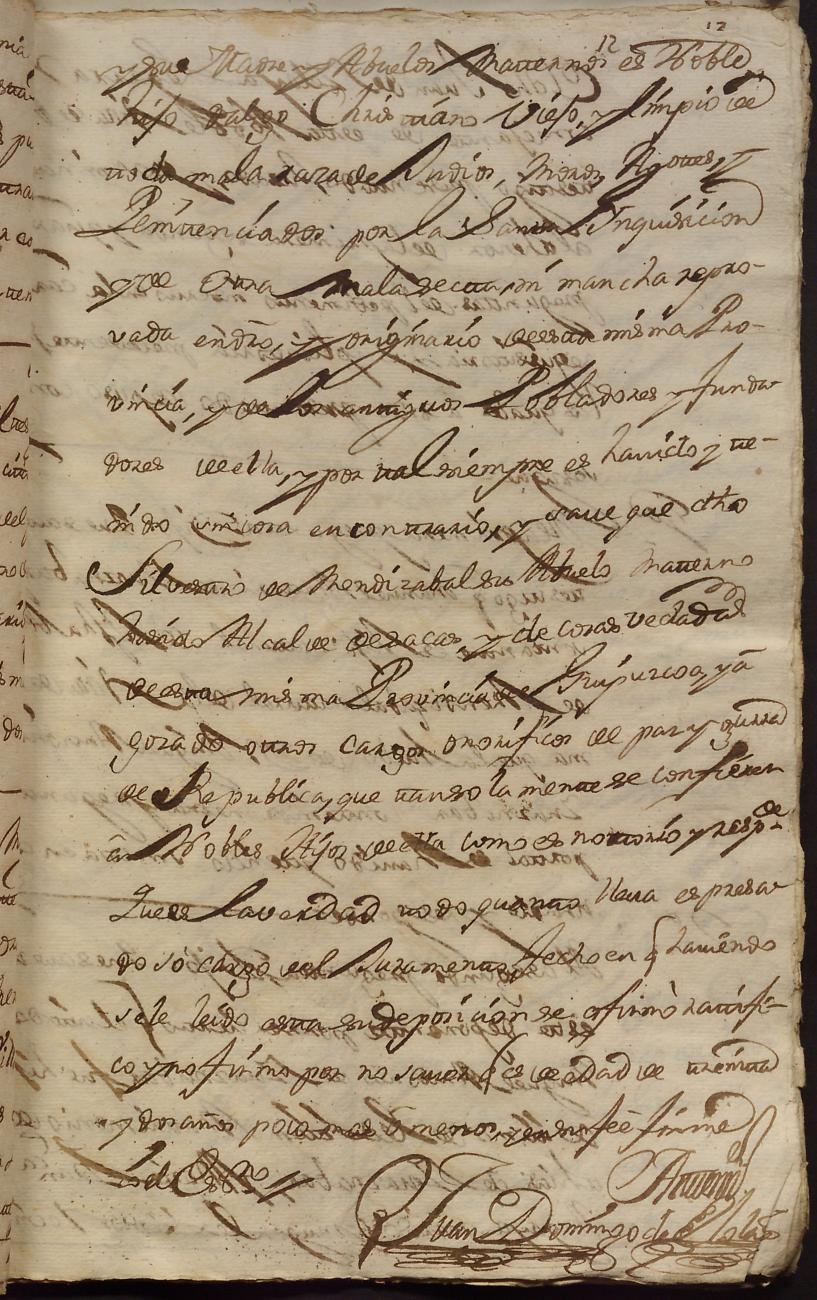 12
12
y que Madre y Abuelos Matternos es Noble
hijo dalgo Christtiano Viejo, y limpio de
toda mala raza de Judios, Moros, Agotes, y
Penitenciados por la Santa Inquisicion
y de otra mala secta, ni mancha repro-
vada en dro, y originario de esta misma Pro-
vincia, y de los antiguos Pobladores y funda-
dores de ella, y por tal siempre es havido y te-
nido sin cosa en contrario, y save que dho
Silvestre de Mendizabal su Abuelo Matterno
ha sido Alcalde de sacas, y de cosas vedadas
de esta misma Provincia de Guipuzcoa, y a
gozado otros cargos onorificos de paz y guerra
de Republica, que tan solamente se confieren
a Nobles Hijos de ella como es notorio y respde
Que es la verdad todo quanto lleva espresa-
do so cargo del Juramento fecho en q haviendo
sele leido esta su deposicion se afirmó rattifi-
co y no firmo por no saver q es de edad de treinta
y dos años poco mas o menos, y en su feé firmé
io el Essno
Antemi
Juan Domingo de